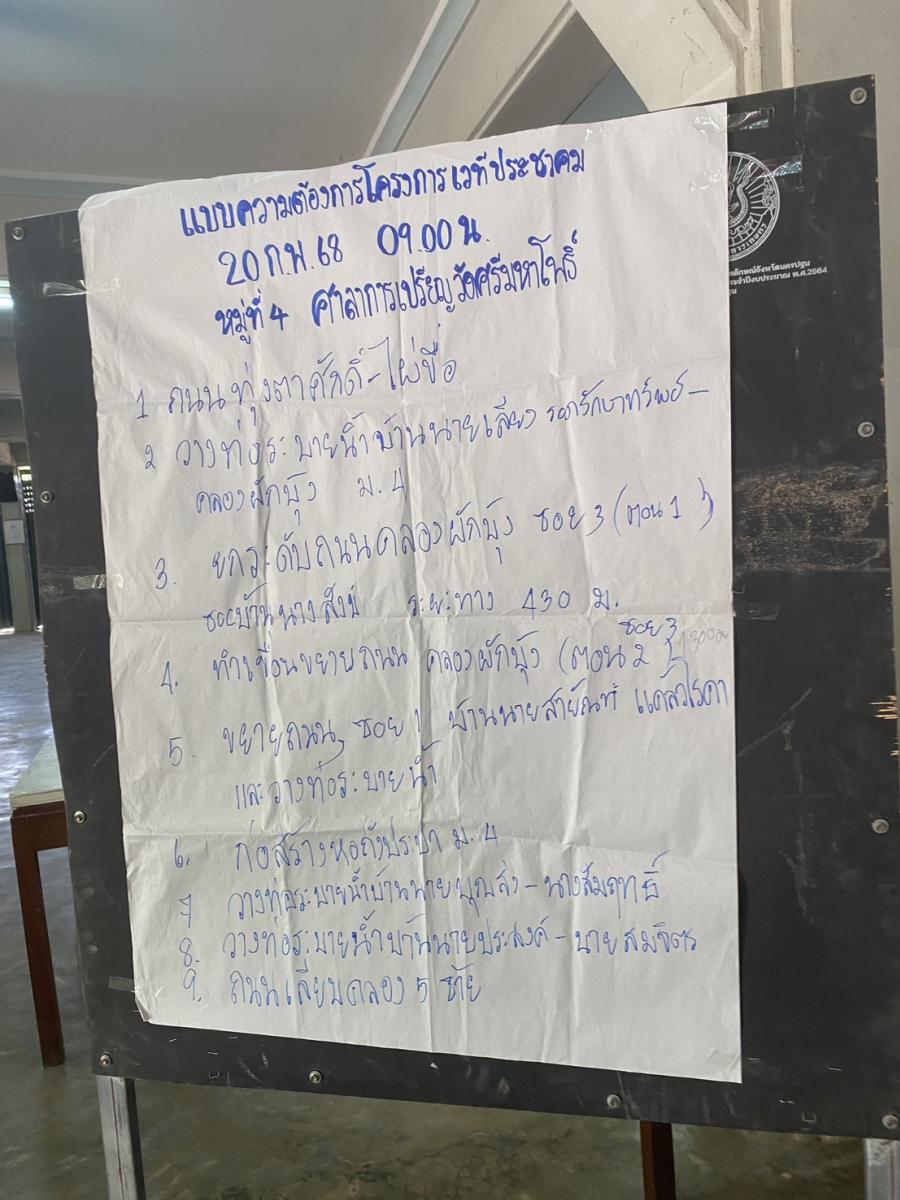 แบบความต้องการโครงการเวทีประชาคม
20 ก.พ. 68 09.00 น.
หมู่ที่ 4 ศาลาการเปรียญวัดศรีมหาโพธิ์
1 ถนนทุ่งตาศักดิ์-ไผ่ขื่อ
2 วางท่อระบายน้ำบ้านนายเสียง รอดรักษาทรัพย์ -
คลองผักบุ้ง ม. 4
3. ยกระดับถนนคลองผักบุ้ง ซอย 3 (ตอน 1)
ซอยบ้านนางสังข์ ระยะทาง 430 ม.
ซอย 3
4. ทำเขื่อนขยายถนน คลองผักบุ้ง (ตอน 2)
5. ขยายถนน ซอย 1 บ้านนายสายัณห์ แคล้วโรคา
และวางท่อระบายน้ำ
6. ก่อสร้างหอถังประปา ม. 4
7 วางท่อระบายน้ำบ้านนายบุญส่ง - นางสัมฤทธิ์
8. วางท่อระบายน้ำบ้านนายประสงค์ - นายสมจิตร
9. ถนนเลียบคลอง 5 ซ้าย
ลักษณ์จังหวัดนครปฐม
ระจำปีงบประมาณ พ.ศ. 2564